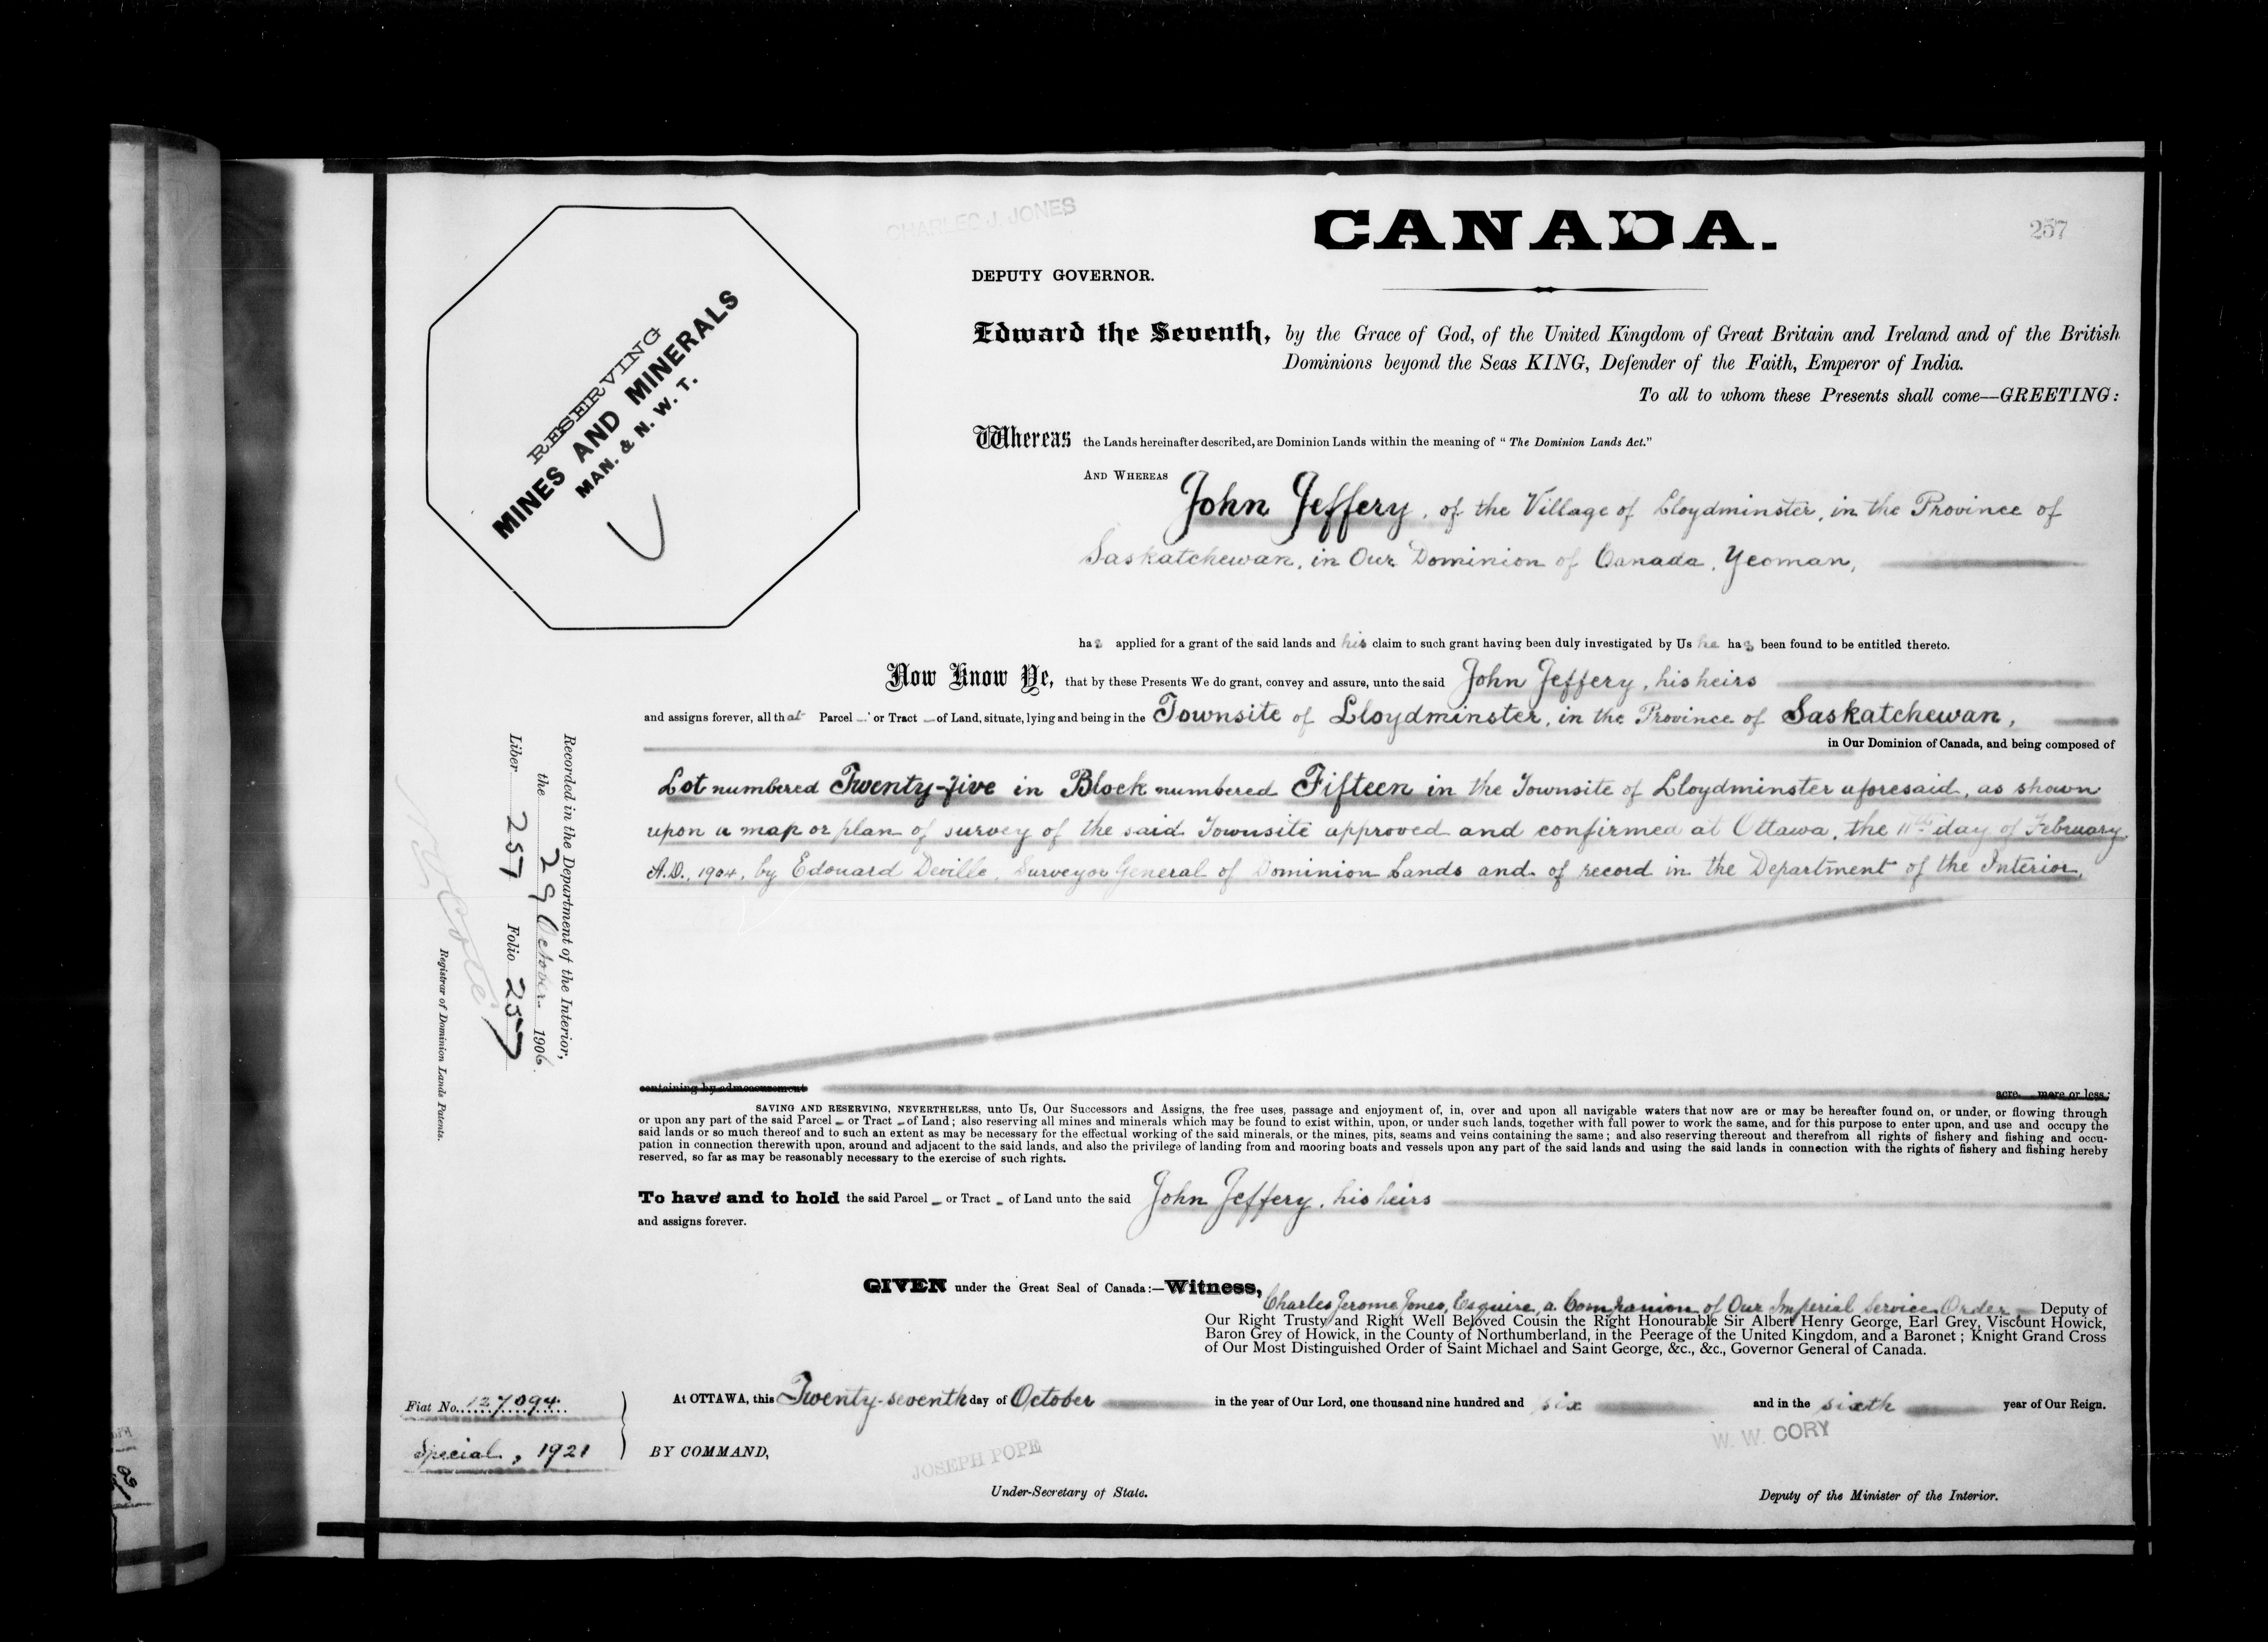 CHARLES J. JONES
CANADA.
257
DEPUTY GOVERNOR.
RESERVING
MINES AND MINERALS
MAN. & N. W. T.
Edward the Seventh, by the Grace of God, of the United Kingdom of Great Britain and Ireland and of the British
Dominions beyond the Seas KING, Defender of the Faith, Emperor of India.
To all to whom these Presents shall come—GREETING:
Whereas the Lands hereinafter described, are Dominion Lands within the meaning of "The Dominion Lands Act."
AND WHEREAS
John Jeffery, of the Village of Lloydminster, in the Province of
Saskatchewan, in Our Dominion of Canada, Yeoman,
has applied for a grant of the said lands and his claim to such grant having been duly investigated by Us he has been found to be entitled thereto.
Now Know Ye, that by these Presents We do grant, convey and assure, unto the said John Jeffery, his heirs
and assigns forever, all that Parcel or Tract of Land, situate, lying and being in the Townsite of Lloydminster, in the Province of Saskatchewan,
in Our Dominion of Canada, and being composed of
Lot numbered Twenty-five in Block numbered Fifteen in the Townsite of Lloydminster aforesaid, as shown
upon a map or plan of survey of the said Townsite approved and confirmed at Ottawa, the 11th day of February
A.D., 1904, by Edouard Deville, Surveyor General of Dominion Lands and of record in the Department of the Interior,
containing by admeasurement acre more or less;
SAVING AND RESERVING, NEVERTHELESS, unto Us, Our Successors and Assigns, the free uses, passage and enjoyment of, in, over and upon all navigable waters that now are or may be hereafter found on, or under, or flowing through
or upon any part of the said Parcel or Tract of Land; also reserving all mines and minerals which may be found to exist within, upon, or under such lands, together with full power to work the same, and for this purpose to enter upon, and use and occupy the
said lands or so much thereof and to such an extent as may be necessary for the effectual working of the said minerals, or the mines, pits, seams and veins containing the same; and also reserving thereout and therefrom all rights of fishery and fishing and occu-
pation in connection therewith upon, around and adjacent to the said lands, and also the privilege of landing from and mooring boats and vessels upon any part of the said lands and using the said lands in connection with the rights of fishery and fishing hereby
reserved, so far as may be reasonably necessary to the exercise of such rights.
To have and to hold the said Parcel or Tract of Land unto the said John Jeffery, his heirs
and assigns forever.
GIVEN under the Great Seal of Canada:—Witness,
Charles Jerome Jones, Esquire, a Companion of Our Imperial Service Order Deputy of
Our Right Trusty and Right Well Beloved Cousin the Right Honourable Sir Albert Henry George, Earl Grey, Viscount Howick,
Baron Grey of Howick, in the County of Northumberland, in the Peerage of the United Kingdom, and a Baronet; Knight Grand Cross
of Our Most Distinguished Order of Saint Michael and Saint George, &c., &c., Governor General of Canada.
At OTTAWA, this Twenty-seventh day of October in the year of Our Lord, one thousand nine hundred and six and in the sixth year of Our Reign.
BY COMMAND,
JOSEPH POPE
Under-Secretary of State.
W. W. CORY
Deputy of the Minister of the Interior.
Fiat No. 127094
Special, 1921
Recorded in the Department of the Interior,
the 29 October 1906.
Liber 257 Folio 257
Registrar of Dominion Lands Patents.